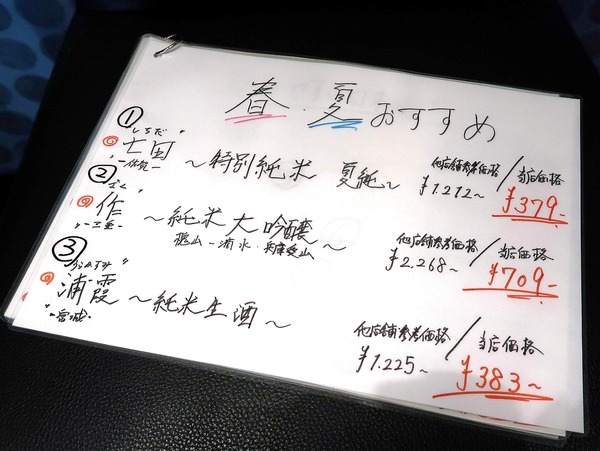 春・夏おすすめ
①
しちだ
七田
-佐賀-
～特別純米 夏純～
他店舗参考価格/当店価格
¥1.212～ ¥379～
②
ざく
作
-三重-
～純米大吟醸～
他店舗参考価格/当店価格
¥2.268～ ¥709～
③
浦霞
-宮城-
～純米生酒～
他店舗参考価格/当店価格
¥1.225～ ¥383～